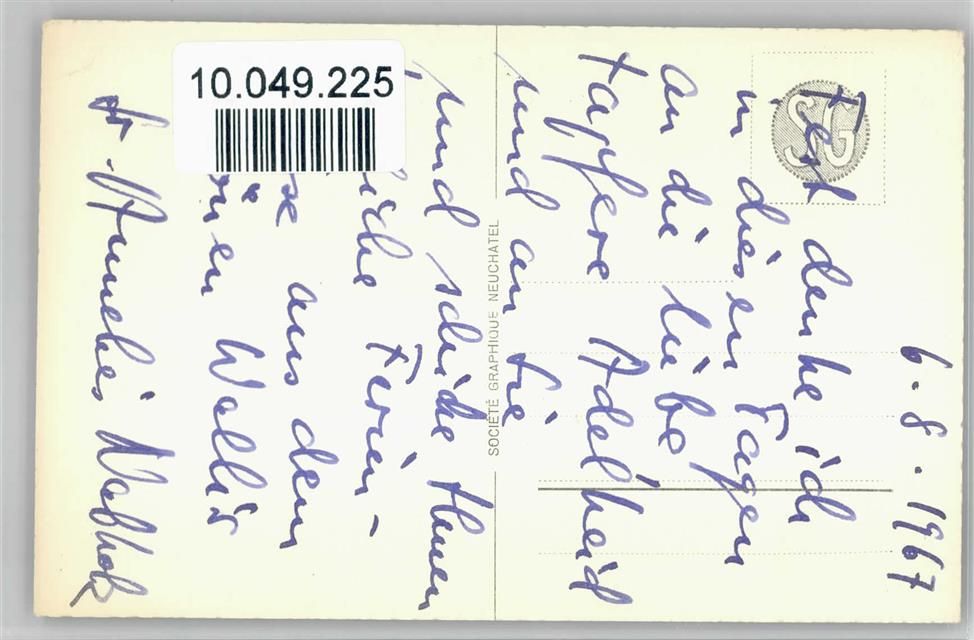 6.8.1967
Fest denke ich
in diesen Tagen
an die liebe
tapfere Adelheid
und an Sie
und schicke Ihnen
Ferien-
aus dem
Wallis
10.049.225
SOCIÉTÉ GRAPHIQUE NEUCHATEL
SG